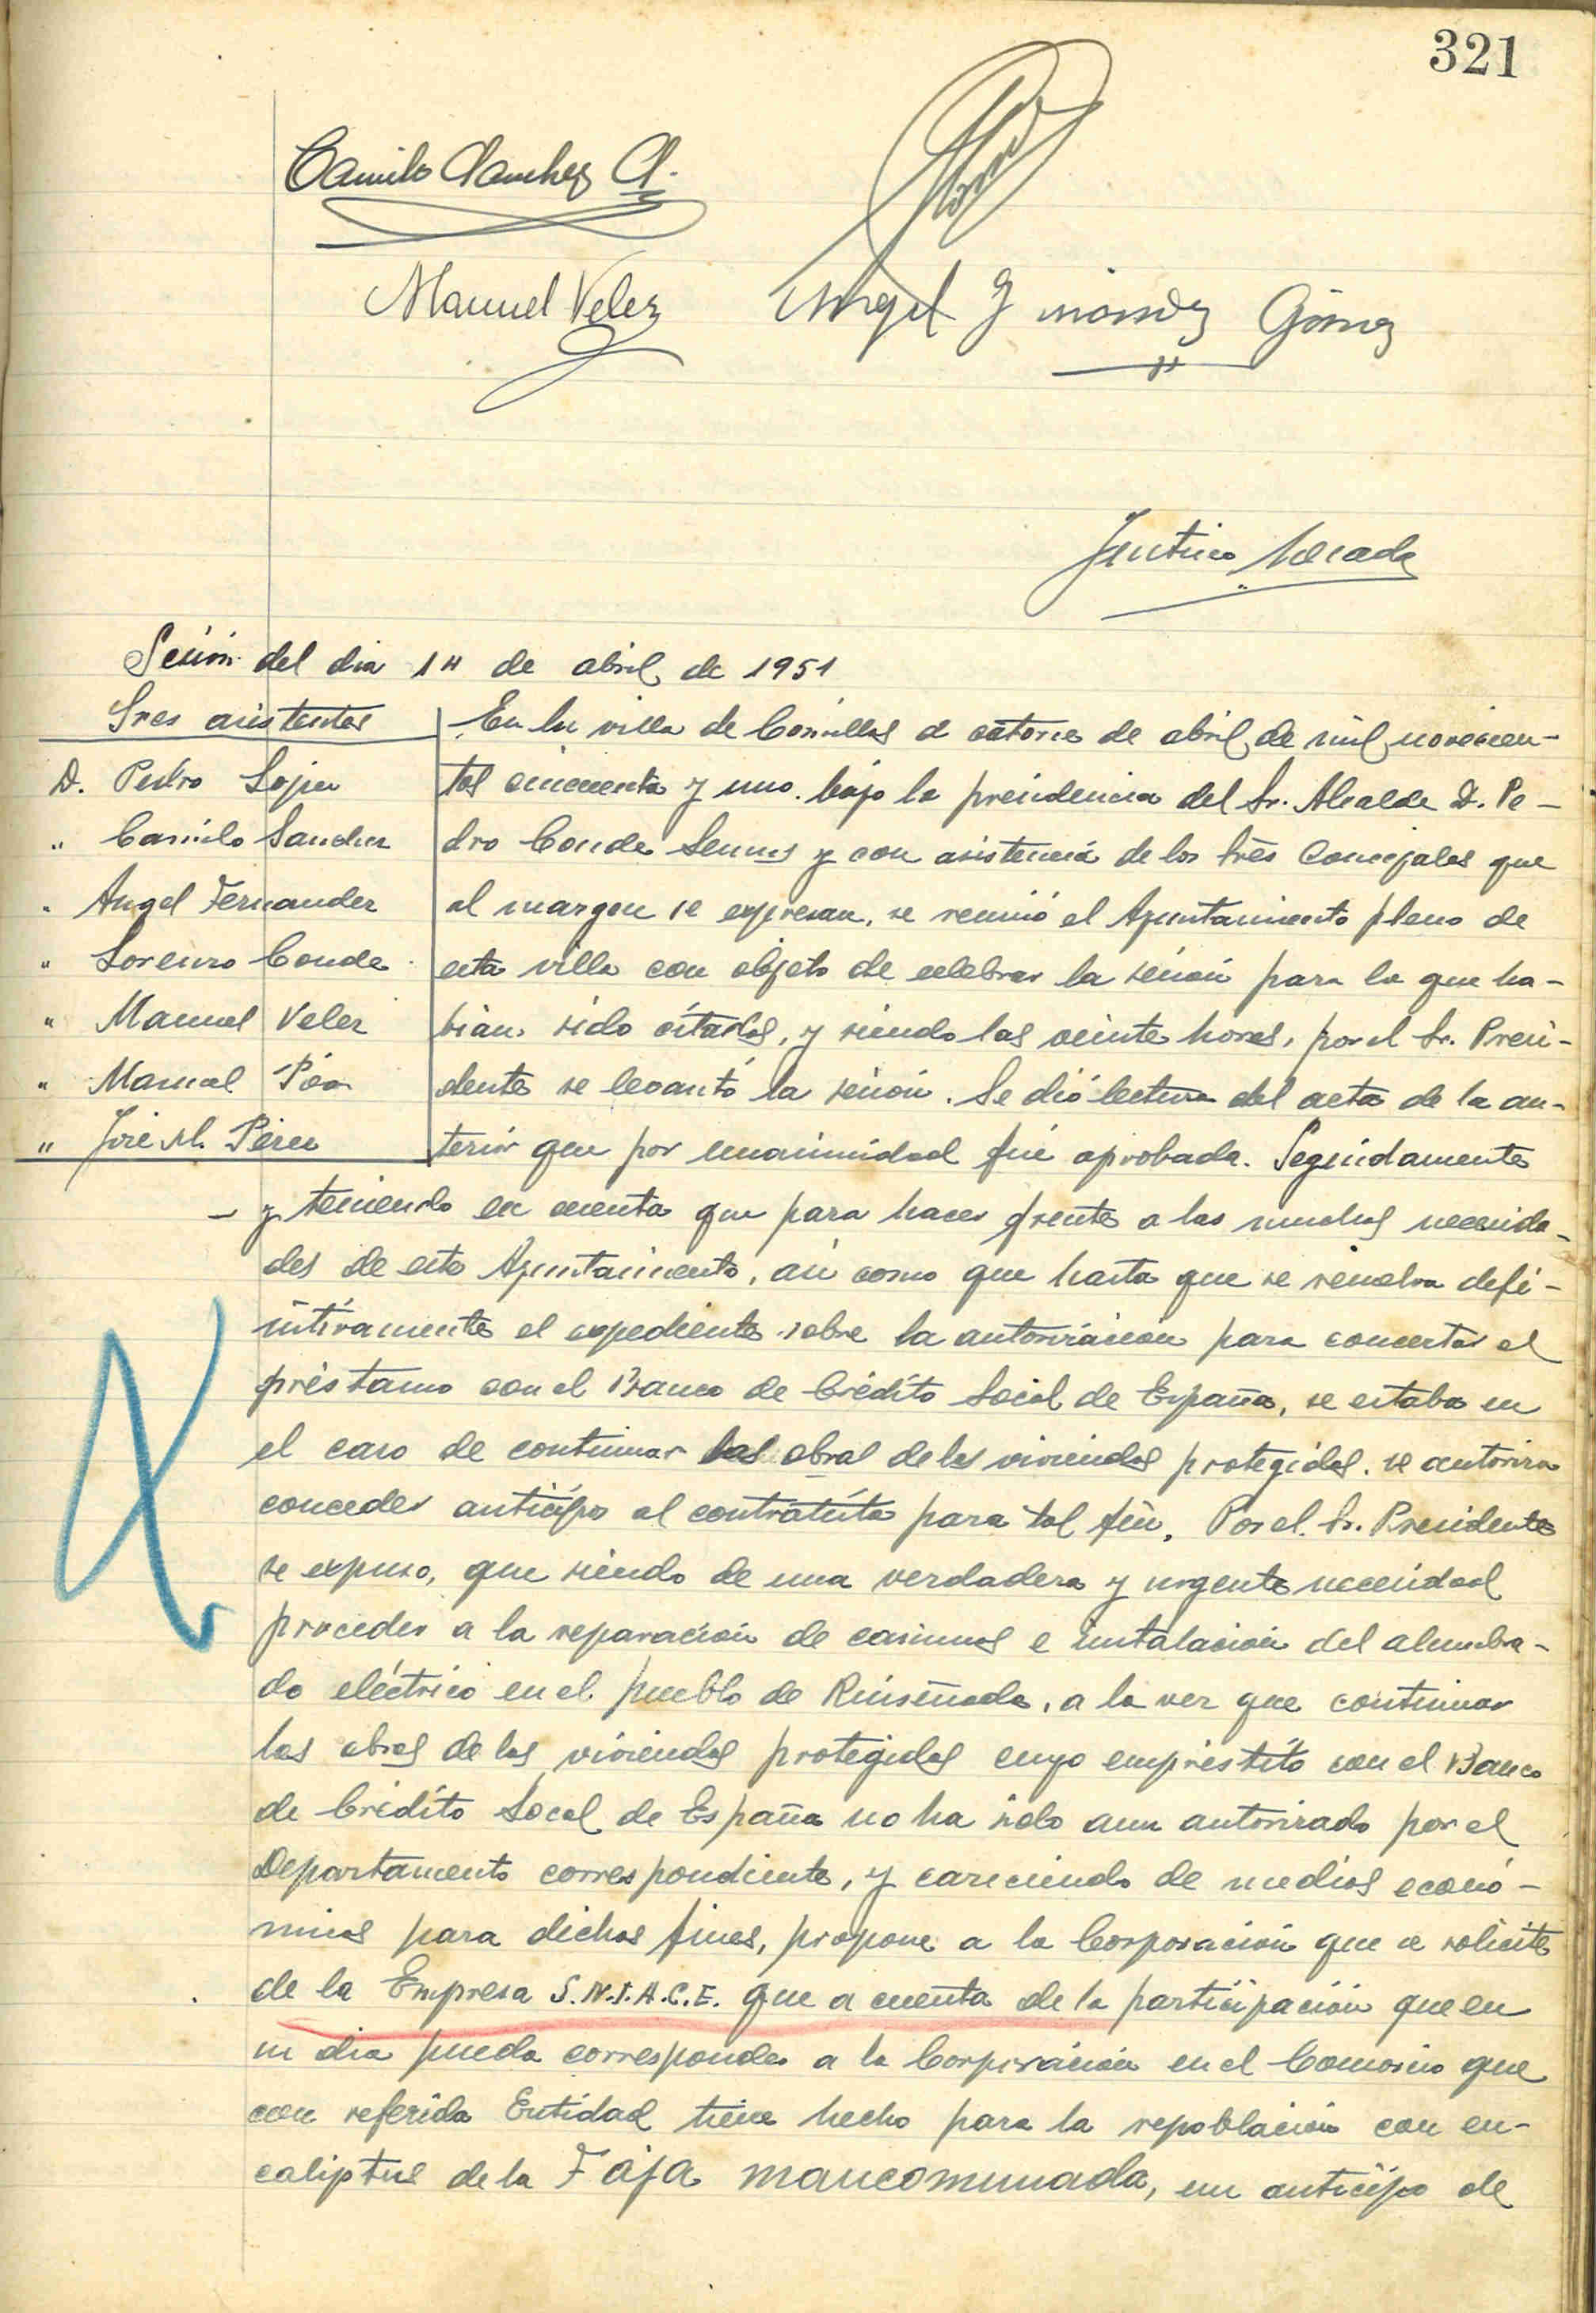 321
Camilo Sanchez A.
Manuel Velez
Angel Gómez
Sesión del dia 14 de abril de 1951
Sres asistentes
D. Pedro
" Camilo Sanchez
" Angel Fernandez
" Lorenzo Conde
" Manuel Velez
" Manuel
" José M. Pérez
En la villa de Comillas a catorce de abril de mil novecien-
tos cincuenta y uno. bajo la presidencia del Sr. Alcalde D. Pe-
dro Conde y con asistencia de los tres Concejales que
al margen se expresan, se reunió el Ayuntamiento pleno de
esta villa con objeto de celebrar la sesión para la que ha-
bian sido citados, y siendo las veinte horas, por el Sr. Presi-
dente se levantó la sesión. Se dió lectura del acta de la an-
terior que por unanimidad fué aprobada. Seguidamente
- y teniendo en cuenta que para hacer frente a las muchas necesida-
des de este Ayuntamiento, asi como que hasta que se resuelva defi-
nitivamente el expediente sobre la autorización para concertar el
préstamo con el Banco de Crédito Local de España, se estaba en
el caso de continuar las obras de las viviendas protegidas. se autoriza
conceder anticipo al contratista para tal fin. Por el Sr. Presidente
se expuso, que siendo de una verdadera y urgente necesidad
proceder a la reparación de caminos e instalación del alumbra-
do eléctrico en el pueblo de Ruiseñada, a la vez que continuar
las obras de las viviendas protegidas cuyo empréstito con el Banco
de Crédito Local de España no ha sido aun autorizado por el
Departamento correspondiente, y careciendo de medios econó-
micos para dichos fines, propone a la Corporación que se solicite
de la Empresa S.N.I.A.C.E. que a cuenta de la participación que en
su dia pueda corresponder a la Corporación en el Consorcio que
con referida Entidad tiene hecho para la repoblación con eu-
caliptus de la Faja mancomunada, un anticipo de